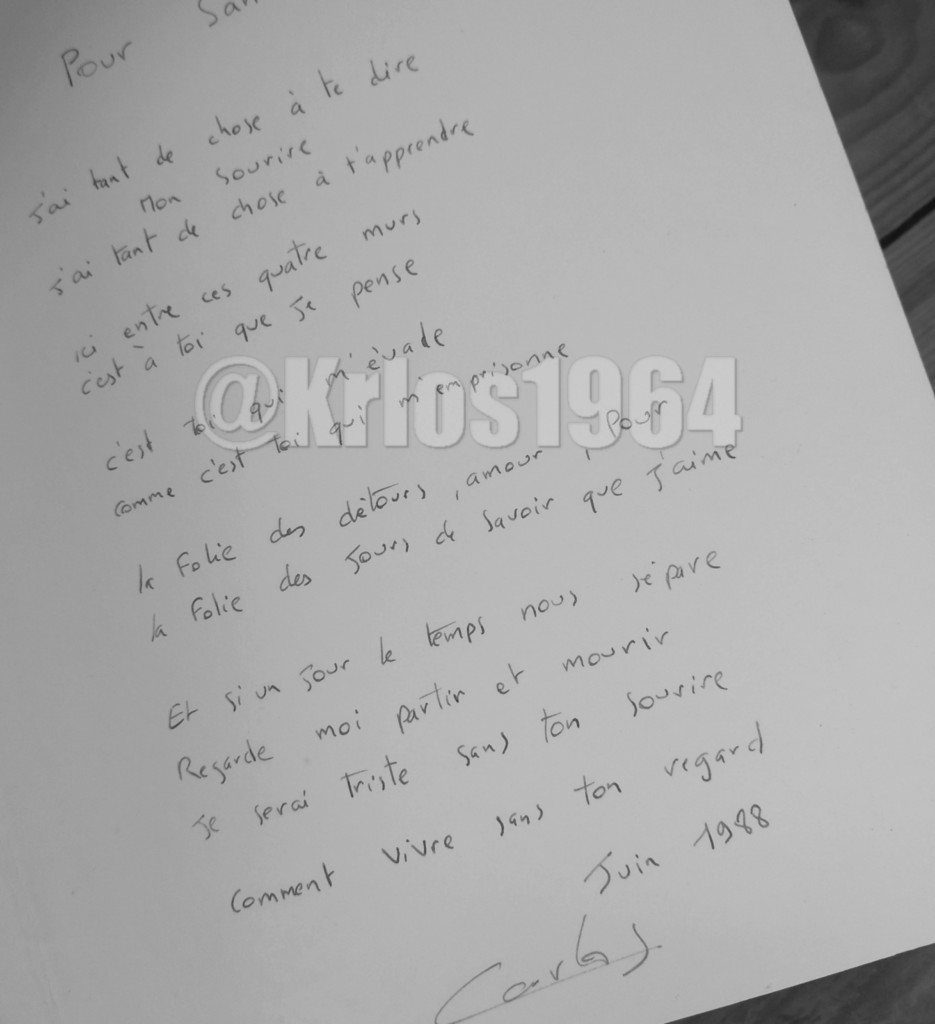 Pour San
J'ai tant de chose à te dire
Mon sourire
J'ai tant de chose à t'apprendre
ici entre ces quatre murs
c'est à toi que je pense
c'est toi qui m'évade
comme c'est toi qui m'emprisonne
la folie des détours, amour, pour
la folie des jours de savoir que j'aime
Et si un jour le temps nous sépare
Regarde moi partir et mourir
Je serai triste sans ton sourire
Comment vivre sans ton regard
Juin 1988
Carlos
@Krlos1964